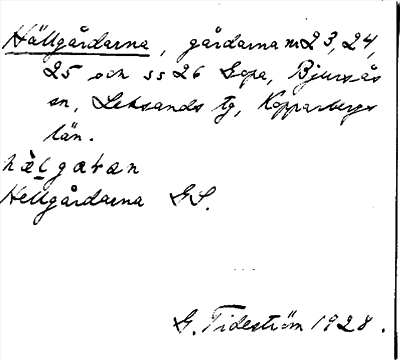 Hällgårdarna, gårdarna nr 23, 24,
25 och ss 26 Sopa, Bjursås
sn, Leksands tg, Kopparbergs
län.
Hellgårdarna GS.
G. Tideström 1928.